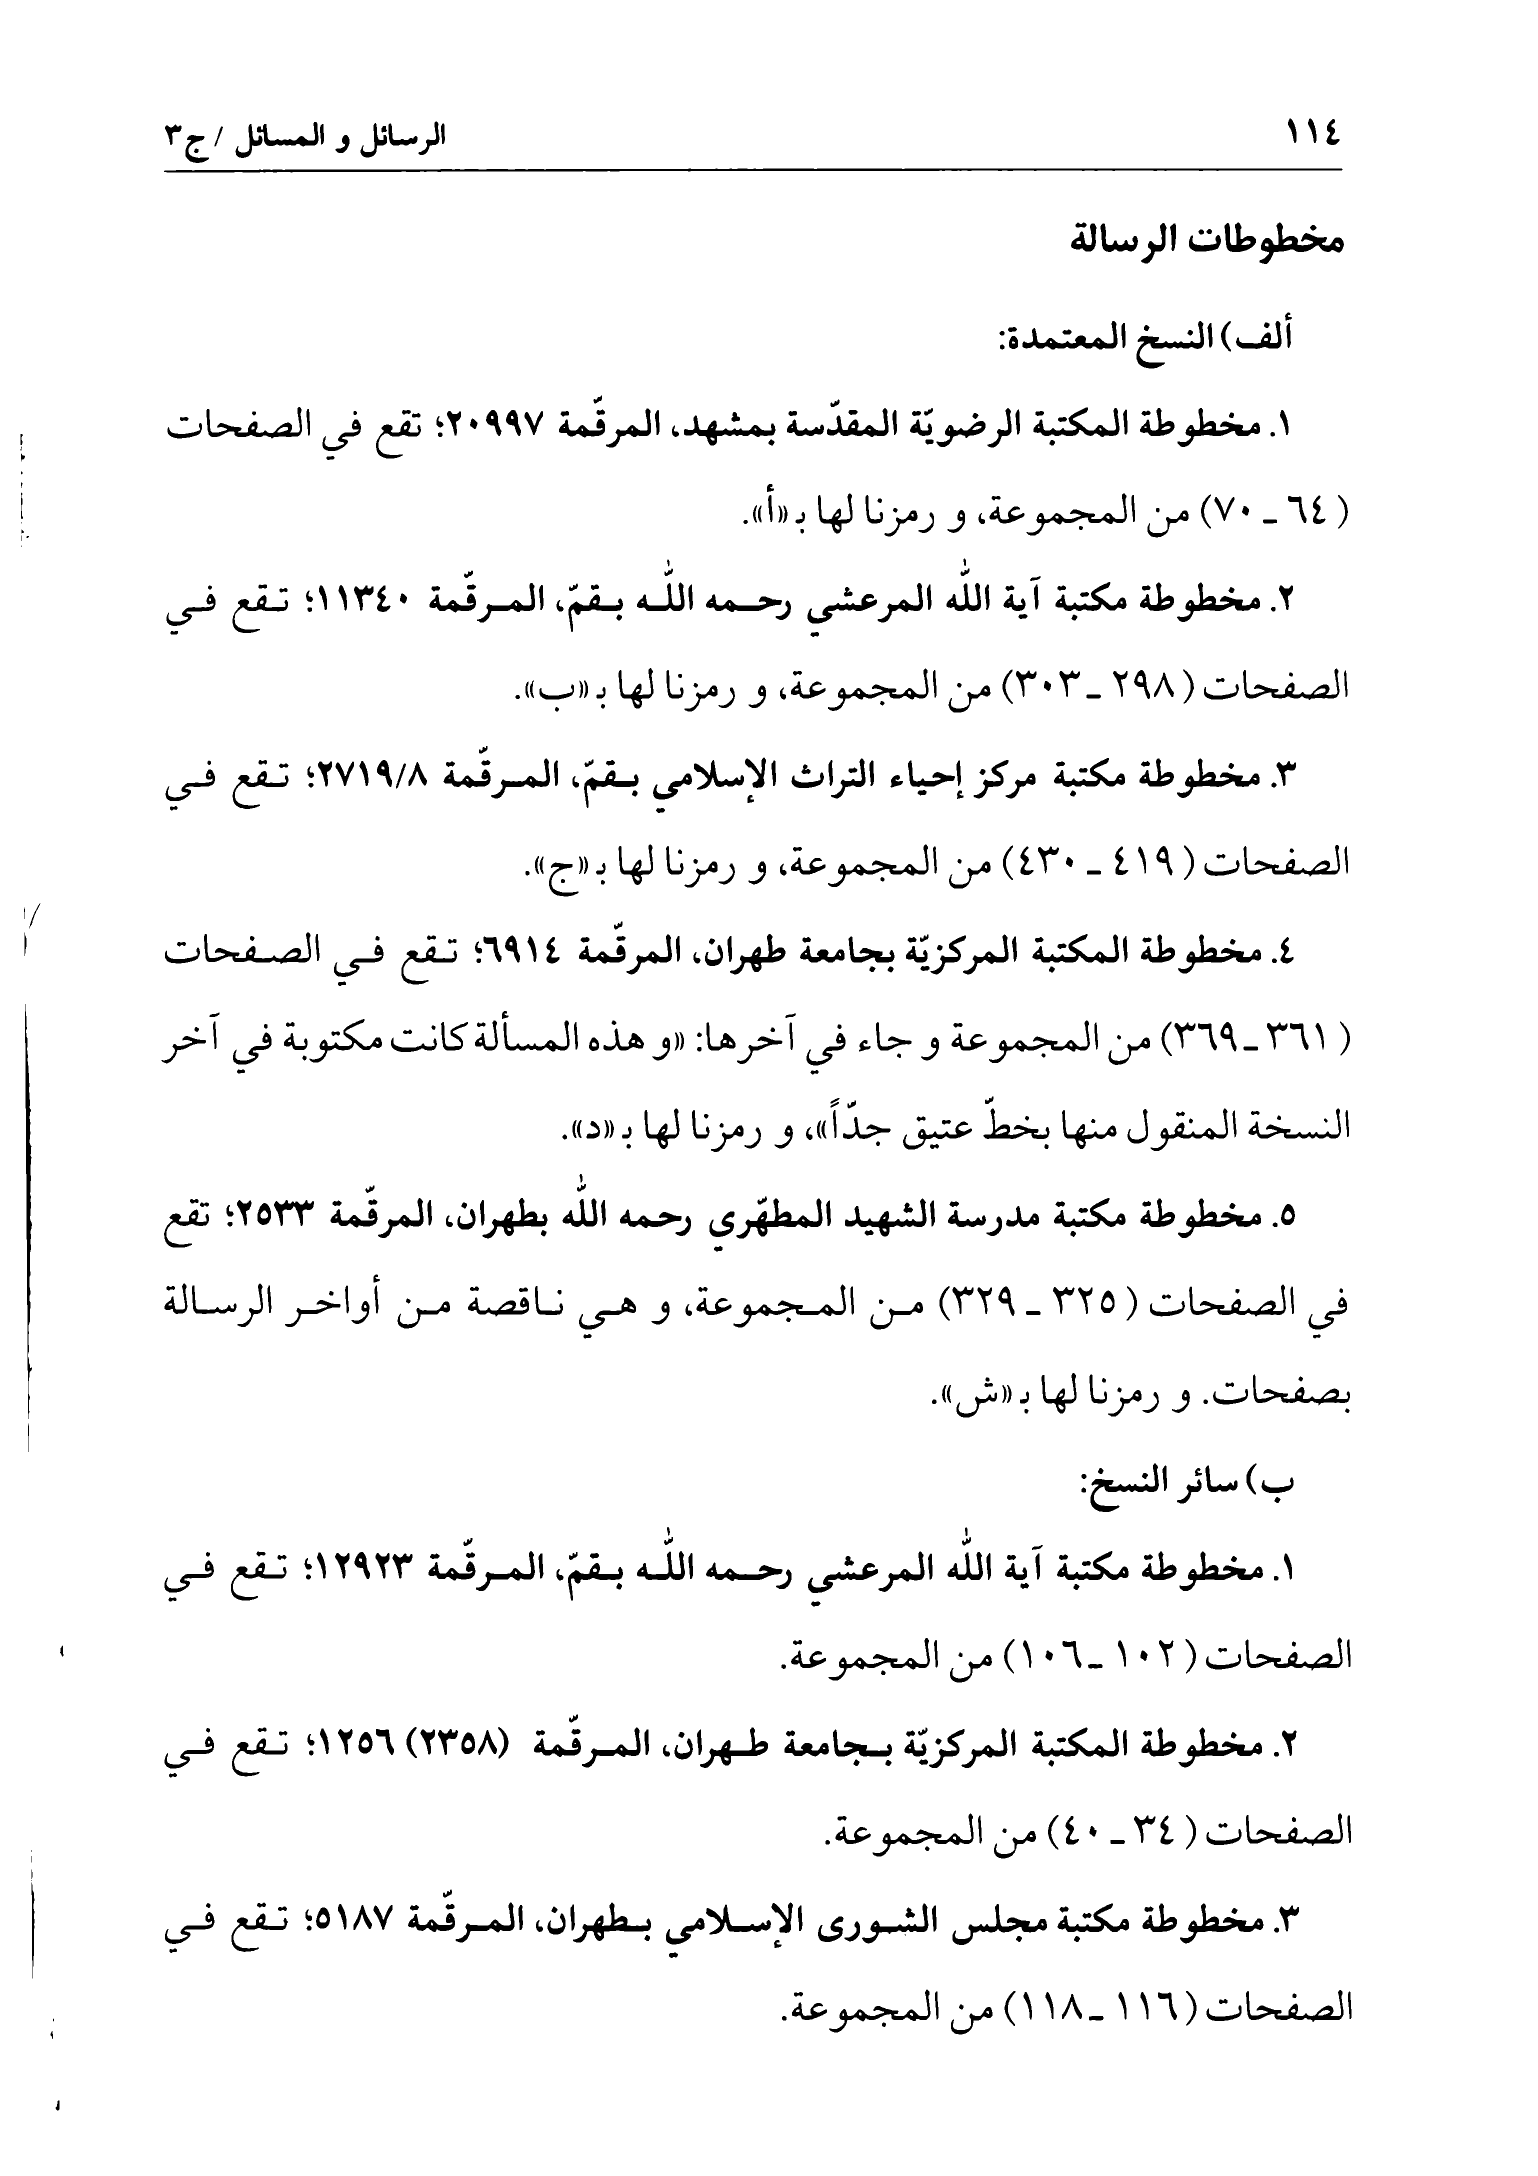 ١١٤ الرسائل و المسائل / ج٣
مخطوطات الرسالة
ألف) النسخ المعتمدة:
١. مخطوطة المكتبة الرضويّة المقدّسة بمشهد، المرقّمة ٢٠٩٩٧؛ تقع في الصفحات
(٦٤ ـ ٧٠) من المجموعة، و رمزنا لها بـ «أ».
٢. مخطوطة مكتبة آية الله المرعشي رحمه الله بقمّ، المرقّمة ١١٣٤٠؛ تقع في
الصفحات (٢٩٨ ـ ٣٠٣) من المجموعة، و رمزنا لها بـ «ب».
٣. مخطوطة مكتبة مركز إحياء التراث الإسلامي بقمّ، المرقّمة ٢٧١٩/٨؛ تقع في
الصفحات (٤١٩ ـ ٤٣٠) من المجموعة، و رمزنا لها بـ «ج».
٤. مخطوطة المكتبة المركزيّة بجامعة طهران، المرقّمة ٦٩١٤؛ تقع في الصفحات
(٣٦١ ـ ٣٦٩) من المجموعة و جاء في آخرها: «و هذه المسألة كانت مكتوبة في آخر
النسخة المنقول منها بخطّ عتيق جدّاً»، و رمزنا لها بـ «د».
٥. مخطوطة مكتبة مدرسة الشهيد المطهّري رحمه الله بطهران، المرقّمة ٢٥٣٣؛ تقع
في الصفحات (٣٢٥ ـ ٣٢٩) من المجموعة، و هي ناقصة من أواخر الرسالة
بصفحات. و رمزنا لها بـ «ش».
ب) سائر النسخ:
١. مخطوطة مكتبة آية الله المرعشي رحمه الله بقمّ، المرقّمة ١٢٩٢٣؛ تقع في
الصفحات (١٠٢ ـ ١٠٦) من المجموعة.
٢. مخطوطة المكتبة المركزيّة بجامعة طهران، المرقّمة (٢٣٥٨) ١٢٥٦؛ تقع في
الصفحات (٣٤ ـ ٤٠) من المجموعة.
٣. مخطوطة مكتبة مجلس الشورى الإسلامي بطهران، المرقّمة ٥١٨٧؛ تقع في
الصفحات (١١٦ ـ ١١٨) من المجموعة.